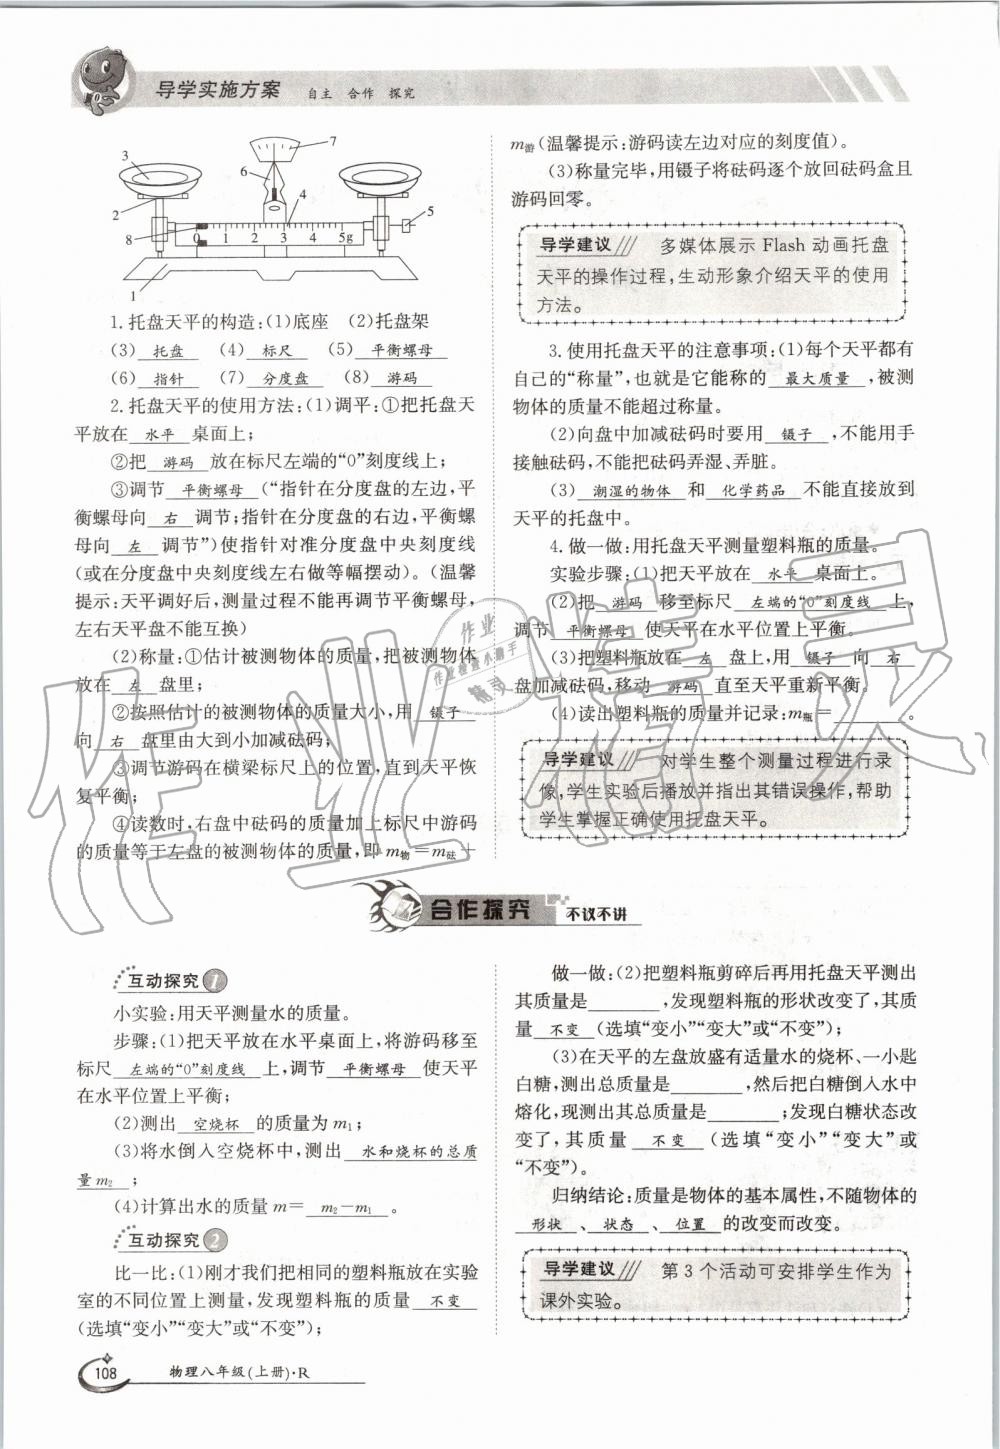 导学实施方案 自主 合作 探究
3
7
6
4
2
5
8
0 1 2 3 4 5g
1
1.托盘天平的构造:(1)底座 (2)托盘架
(3) 托盘 (4) 标尺 (5) 平衡螺母
(6) 指针 (7) 分度盘 (8) 游码
2.托盘天平的使用方法:(1)调平:①把托盘天
平放在 水平 桌面上;
②把 游码 放在标尺左端的“0”刻度线上;
③调节 平衡螺母 (“指针在分度盘的左边,平
衡螺母向 右 调节;指针在分度盘的右边,平衡螺
母向 左 调节”)使指针对准分度盘中央刻度线
(或在分度盘中央刻度线左右做等幅摆动)。(温馨
提示:天平调好后,测量过程不能再调节平衡螺母,
左右天平盘不能互换)
(2)称量:①估计被测物体的质量,把被测物体
放在 左 盘里;
②按照估计的被测物体的质量大小,用 镊子
向 右 盘里由大到小加减砝码;
③调节游码在横梁标尺上的位置,直到天平恢
复平衡;
④读数时,右盘中砝码的质量加上标尺中游码
的质量等于左盘的被测物体的质量,即 m物=m砝+
m游(温馨提示:游码读左边对应的刻度值)。
(3)称量完毕,用镊子将砝码逐个放回砝码盒且
游码回零。
导学建议 多媒体展示 Flash 动画托盘
天平的操作过程,生动形象介绍天平的使用
方法。
3.使用托盘天平的注意事项:(1)每个天平都有
自己的“称量”,也就是它能称的 最大质量 ,被测
物体的质量不能超过称量。
(2)向盘中加减砝码时要用 镊子 ,不能用手
接触砝码,不能把砝码弄湿、弄脏。
(3) 潮湿的物体 和 化学药品 不能直接放到
天平的托盘中。
4.做一做:用托盘天平测量塑料瓶的质量。
实验步骤:(1)把天平放在 水平 桌面上。
(2)把 游码 移至标尺 左端的“0”刻度线 上,
调节 平衡螺母 使天平在水平位置上平衡。
(3)把塑料瓶放在 左 盘上,用 镊子 向 右
盘加减砝码,移动 游码 直至天平重新平衡。
(4)读出塑料瓶的质量并记录:m瓶=________。
导学建议 对学生整个测量过程进行录
像,学生实验后播放并指出其错误操作,帮助
学生掌握正确使用托盘天平。
合作探究 不议不讲
互动探究1
小实验:用天平测量水的质量。
步骤:(1)把天平放在水平桌面上,将游码移至
标尺 左端的“0”刻度线 上,调节 平衡螺母 使天平
在水平位置上平衡;
(2)测出 空烧杯 的质量为 m1;
(3)将水倒入空烧杯中,测出 水和烧杯的总质
量m2 ;
(4)计算出水的质量 m= m2-m1 。
互动探究2
比一比:(1)刚才我们把相同的塑料瓶放在实验
室的不同位置上测量,发现塑料瓶的质量 不变
(选填“变小”“变大”或“不变”);
做一做:(2)把塑料瓶剪碎后再用托盘天平测出
其质量是________,发现塑料瓶的形状改变了,其质
量 不变 (选填“变小”“变大”或“不变”);
(3)在天平的左盘放盛有适量水的烧杯、一小匙
白糖,测出总质量是________,然后把白糖倒入水中
熔化,现测出其总质量是________;发现白糖状态改
变了,其质量 不变 (选填“变小”“变大”或
“不变”)。
归纳结论:质量是物体的基本属性,不随物体的
形状 、 状态 、 位置 的改变而改变。
导学建议 第 3 个活动可安排学生作为
课外实验。
108 物理八年级(上册)·R
作业精灵
作业
作业检查小助手
精灵